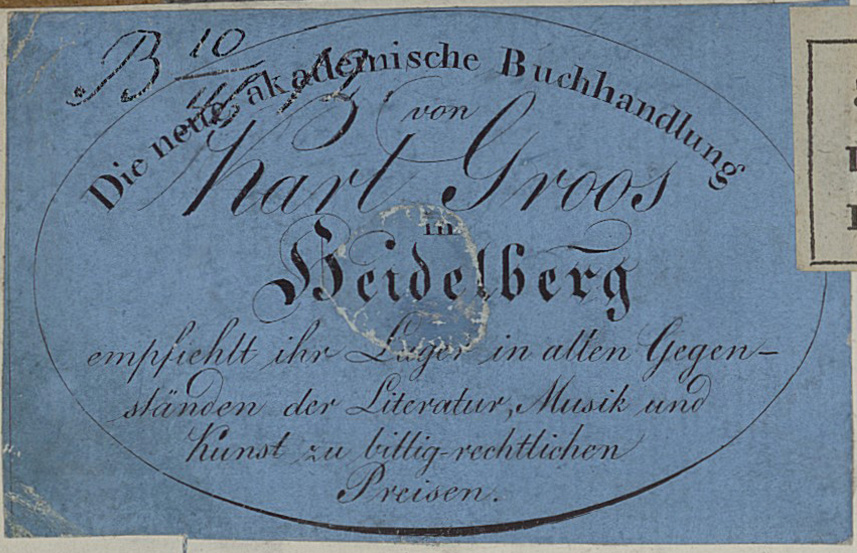 B 10
Die neue akademische Buchhandlung
von
Karl Groos
in
Heidelberg
empfiehlt ihr Lager in allen Gegen-
ständen der Literatur, Musik und
Kunst zu billig-rechtlichen
Preisen.